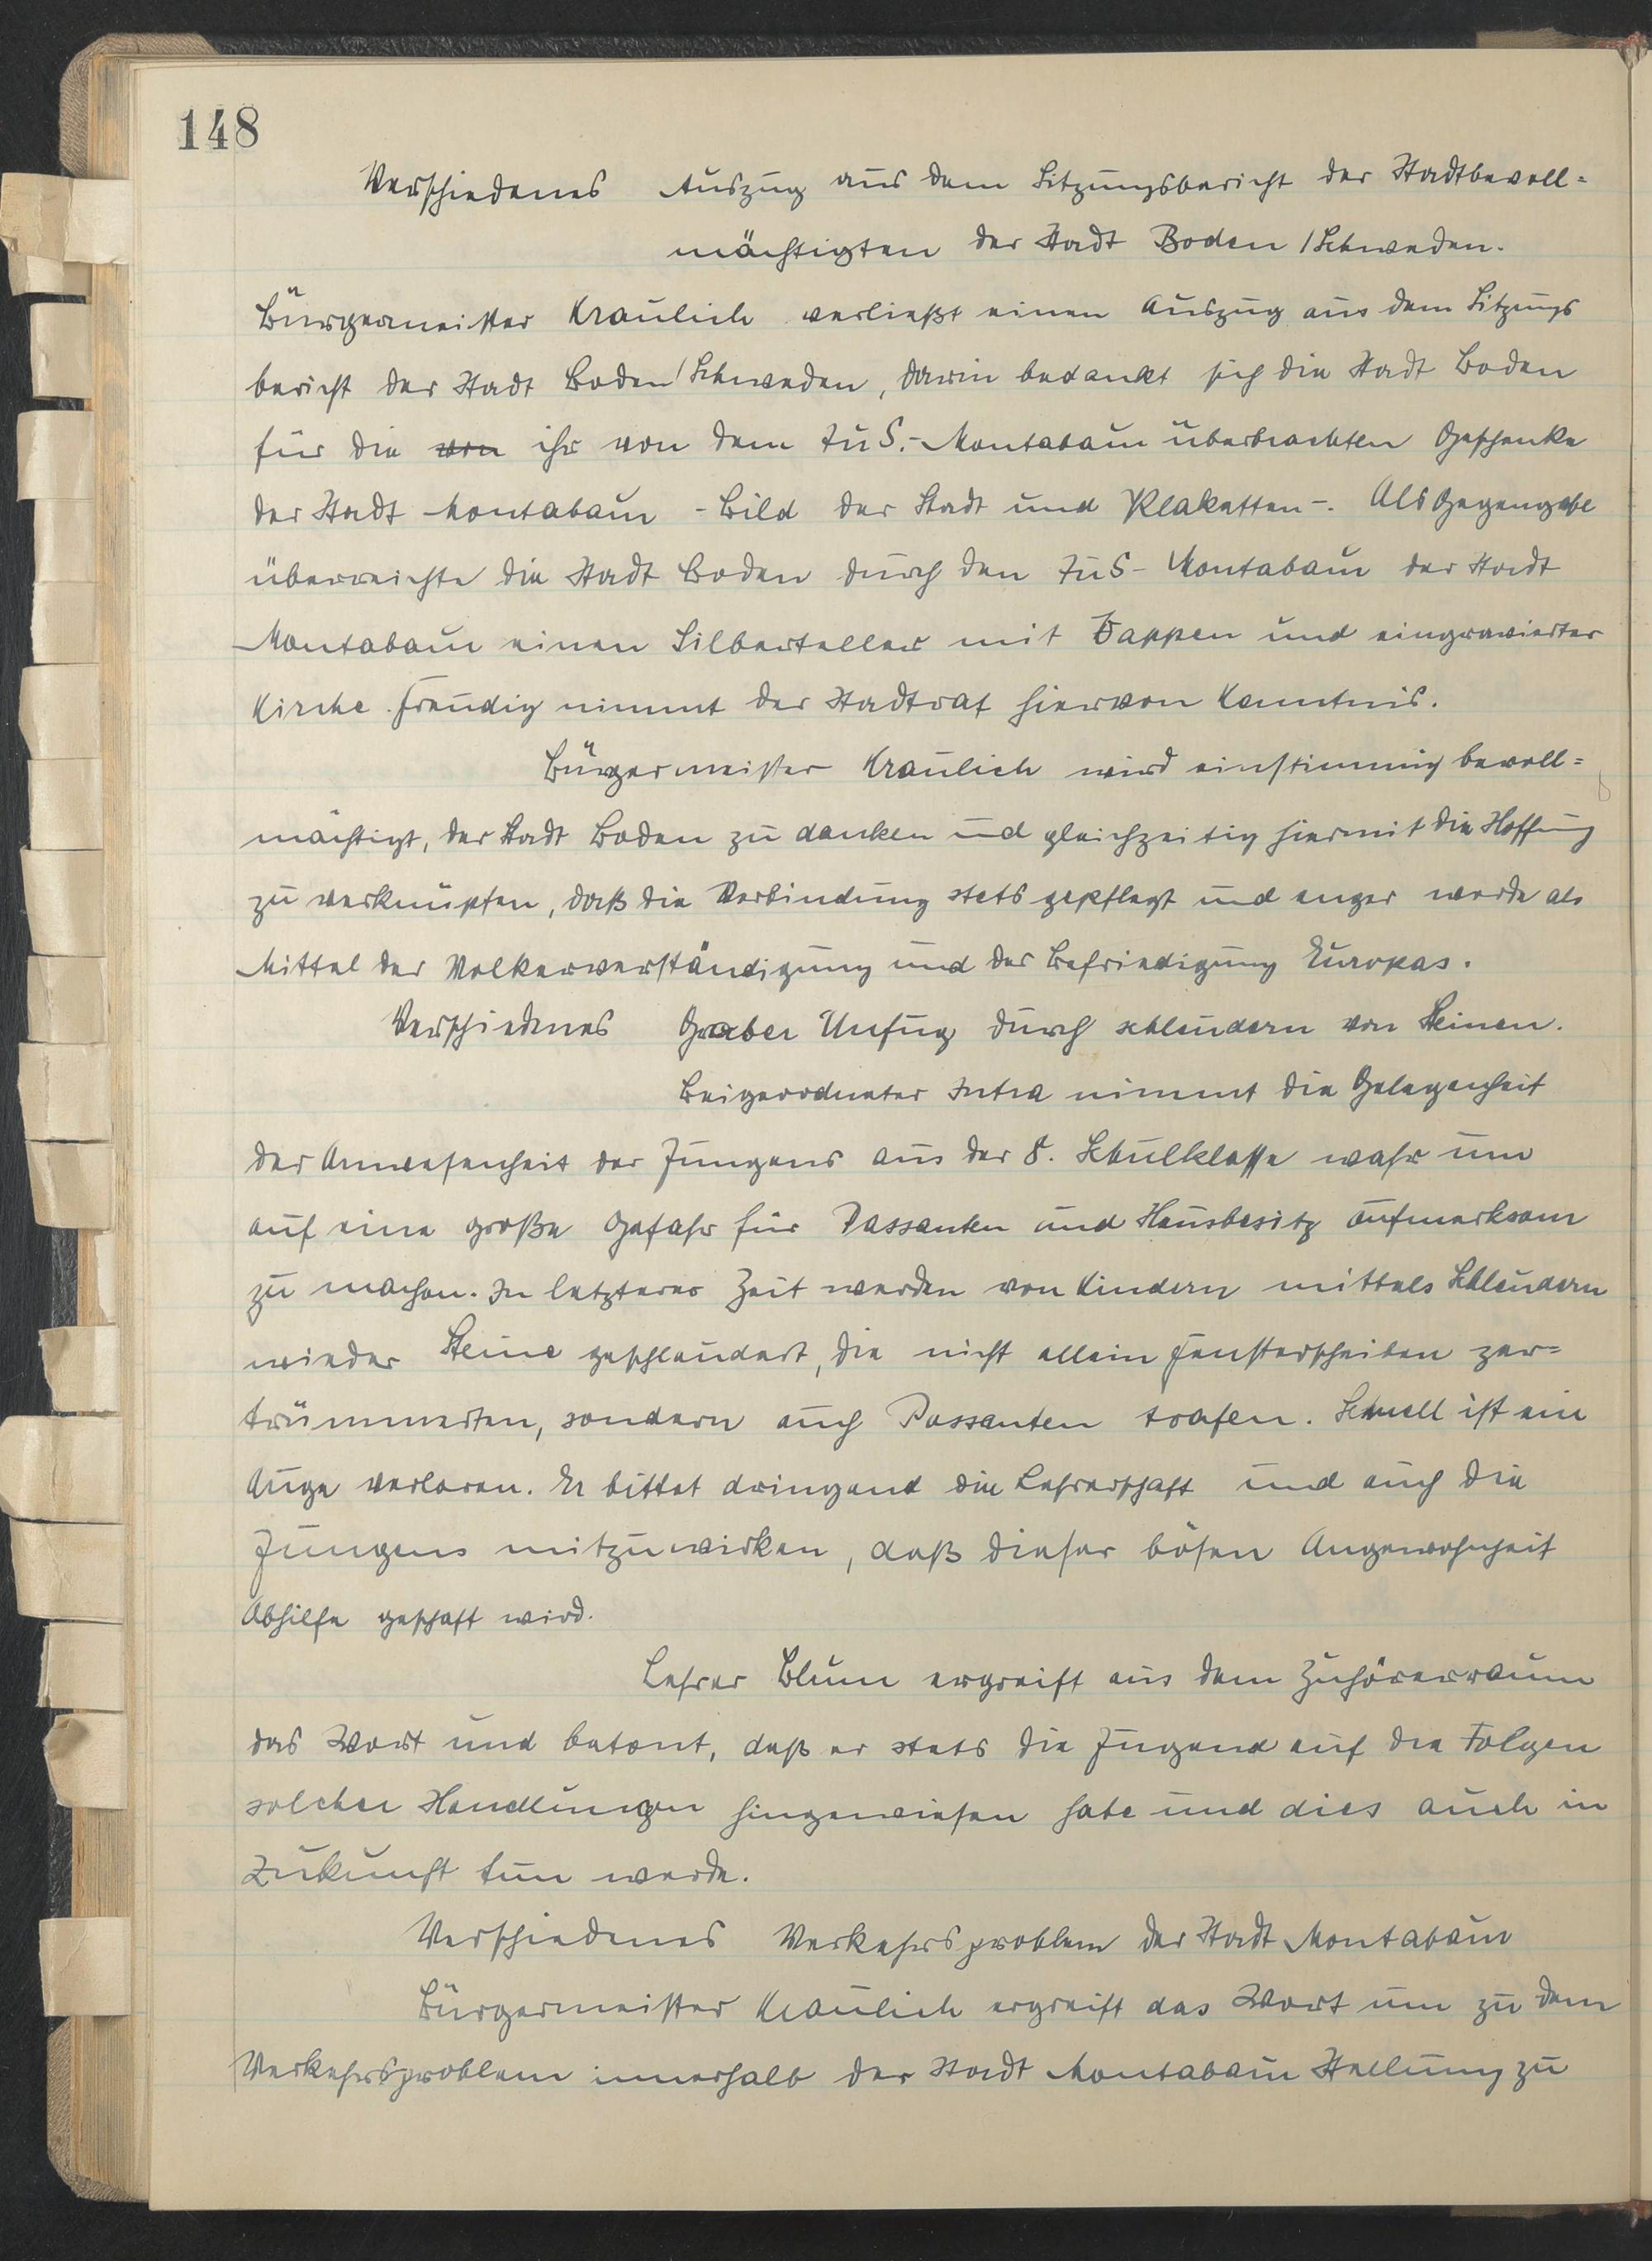 148
Verschiedenes Auszug aus dem Sitzungsbericht der Stadtbevoll=
mächtigten der Stadt Boden / Schweden.
Bürgermeister Kraulich verließt einen Auszug aus dem Sitzungs
bericht der Stadt Boden / Schweden, darin bedankt sich die Stadt Boden
für die von ihr von dem TuS.-Montabaur überbrachten Geschenke
der Stadt Montabaur - Bild der Stadt und Plaketten -. Als Gegengabe
überreichte die Stadt Boden durch den TuS- Montabaur der Stadt
Montabaur einen Silberteller mit Wappen und eingravierter
Kirche. Freudig nimmt der Stadtrat hiervon Kenntnis.
Bürgermeister Kraulich wird einstimmig bevoll=
mächtigt, der Stadt Boden zu danken und gleichzeitig hiermit die Hoffnung
zu verknüpfen, daß die Verbindung stets gepflegt und enger werde als
Mittel der Volkerverständigung und der Befriedigung Europas.
Verschiedenes Grober Unfug durch schleudern von Steinen.
Beigeordneter Intra nimmt die Gelegenheit
der Anwesenheit der Jungens aus der 8. Schulklasse wahr um
auf eine große Gefahr für Passanten und Hausbesitz aufmerksam
zu machen. In letzterer Zeit werden von Kindern mittels Schleudern
wieder Steine geschleudert, die nicht allein Fensterscheiben zer=
trümmerten, sondern auch Passanten trafen. Schnell ist ein
Auge verloren. Er bittet dringend die Lehrerschaft und auch die
Jungens mitzuwirken, daß dieser bösen Angewohnheit
Abhilfe geschaft wird.
Lehrer Blum ergreift aus dem Zuhörerraum
das Wort und betont, daß er stets die Jugend auf die Folgen
solcher Handlungen hingewiesen habe und dies auch in
Zukunft tun werde.
Verschiedenes Verkehrsproblem der Stadt Montabaur
Bürgermeister Kraulich ergreift das Wort um zu dem
Verkehrsproblem innerhalb der Stadt Montabaur Stellung zu